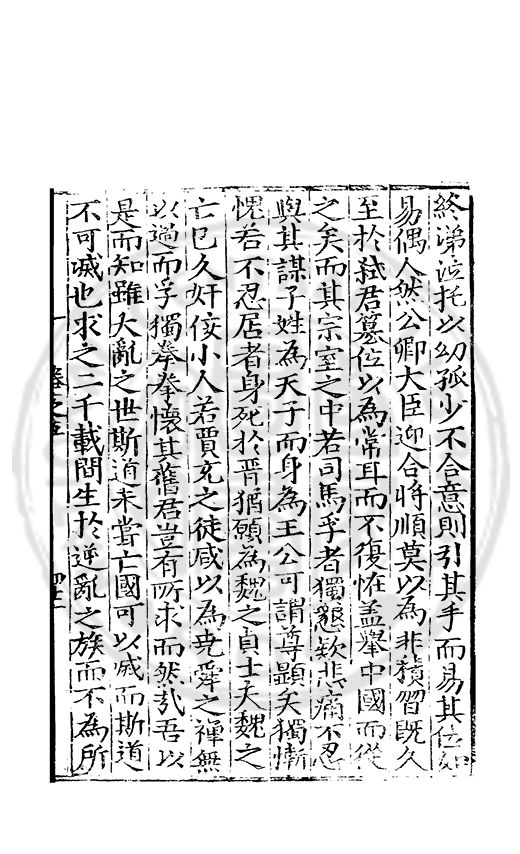 終涕泣托以幼孤少不合意則引其手而易其位如
易偶人然公卿大臣迎合將順莫以為非積習既久
至於弒君篡位以為常耳而不復怪蓋舉中國而從
之矣而其宗室之中若司馬孚者獨懇欵悲痛不忍
與其謀子姓為天子而身為王公可謂尊顯矣獨慚
愧若不忍居者身死於晋猶願為魏之貞士夫魏之
亡已久奸佞小人若賈充之徒咸以為堯舜之禪無
以過而孚獨拳拳懷其舊君豈有所求而然哉吾以
是而知雖大亂之世斯道未嘗亡國可以滅而斯道
不可滅也求之二千載間生於逆亂之族而不為所
卷之五